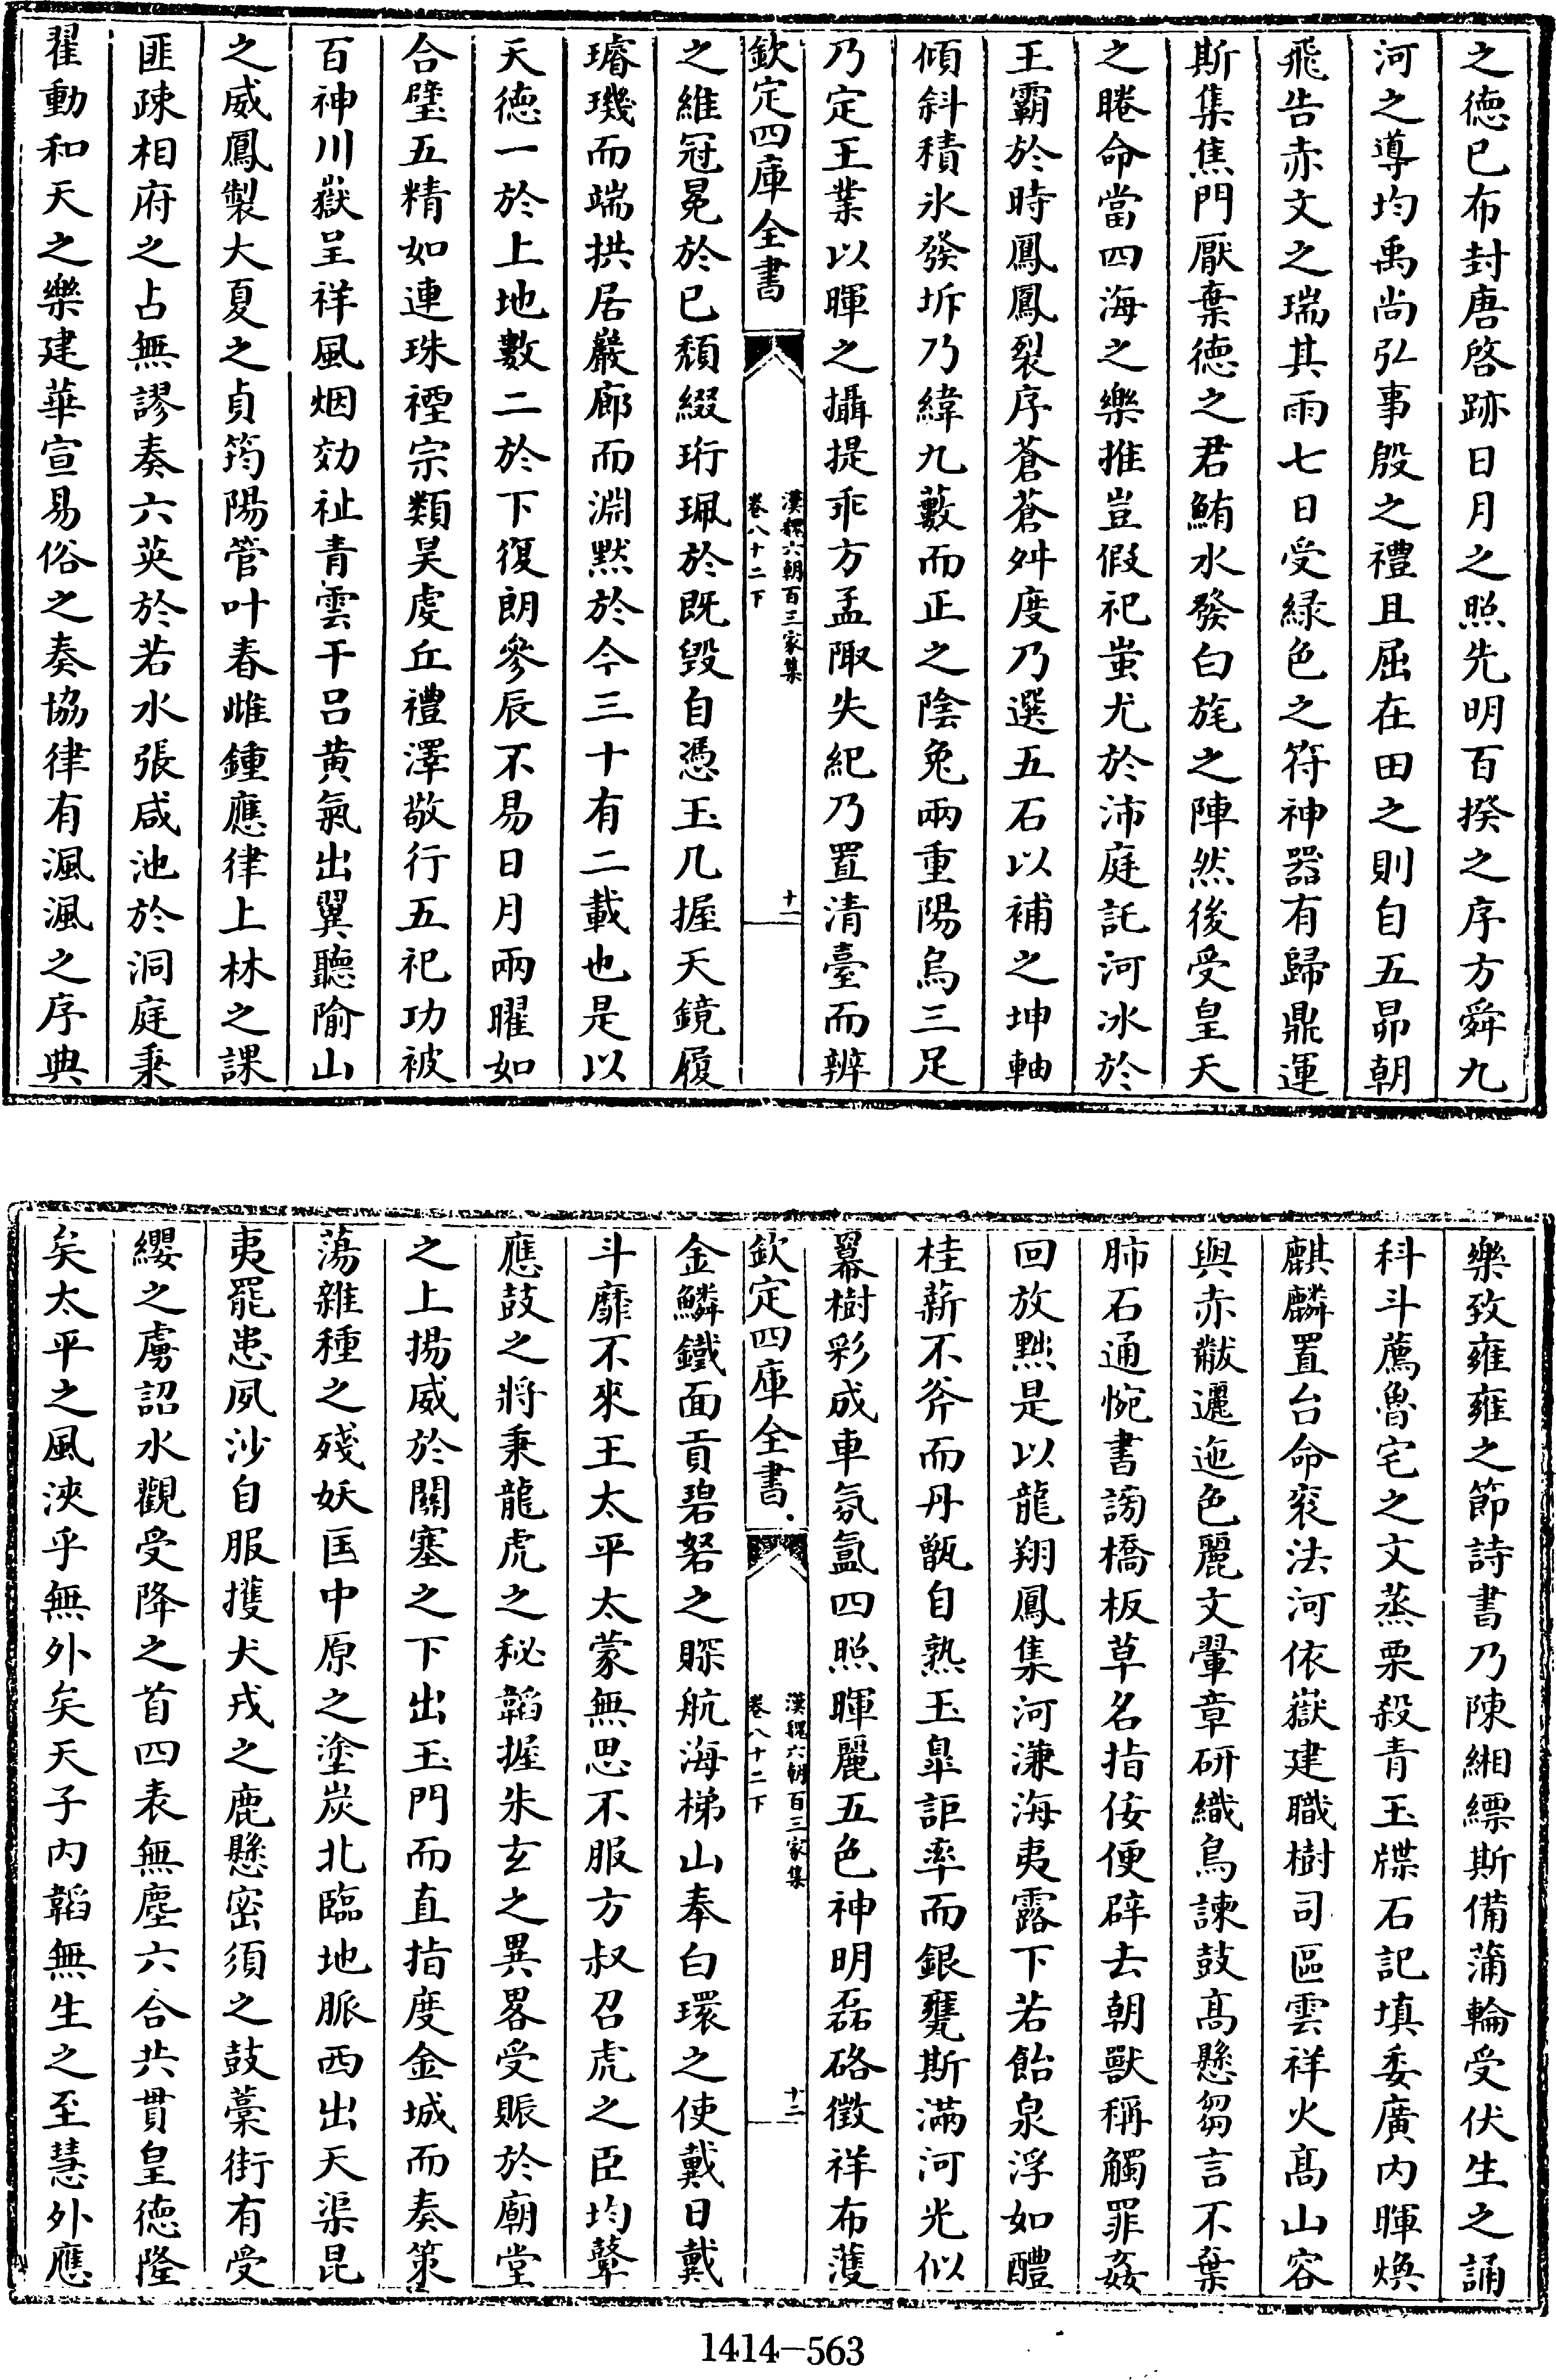 之德已布封唐啓跡日月之照先明百揆之序方舜九
河之導均禹尚弘事殷之禮且屈在田之則自五昴朝
飛告赤文之瑞其雨七日受綠色之符神器有歸鼎運
斯集焦門厭棄德之君鮪水發白旄之陣然後受皇天
之睠命當四海之樂推豈假祀蚩尤於沛庭託河冰於
王霸於時鳳鳳裂序蒼蒼舛度乃選五石以補之坤軸
傾斜積氷發坼乃緯九藪而正之陰兔兩重陽烏三足
乃定王業以暉之攝提乖方孟陬失紀乃置清臺而辨
欽定四庫全書
漢魏六朝百三家集
卷八十二下
十一
之維冠冕於已頽綴珩珮於既毀自憑玉几握天鏡履
璿璣而端拱居巖廊而淵黙於今三十有二載也是以
天德一於上地數二於下復朗參辰不易日月兩曜如
合璧五精如連珠禋宗類昊虔丘禮澤敬行五祀功被
百神川嶽呈祥風烟効祉青雲干呂黄氣出翼聽隃山
之威鳳製大夏之貞筠陽管叶春雌鍾應律上林之課
匪疎相府之占無謬奏六英於若水張咸池於洞庭秉
翟動和天之樂建華宣易俗之奏協律有渢渢之序典
樂致雍雍之節詩書乃陳緗縹斯備蒲輪受伏生之誦
科斗薦魯宅之文蒸栗殺青玉牒石記填委廣内暉煥
麒麟置台命衮法河依嶽建職樹司區雲祥火髙山容
與赤黻邐迤色麗文翬章研織鳥諫鼓髙懸芻言不棄
肺石通惋書謗橋板草名指佞便辟去朝獸稱觸罪姦
回放黜是以龍翔鳳集河溓海夷露下若飴泉浮如醴
桂薪不斧而丹甑自熟玉皐詎率而銀甕斯滿河光似
羃樹彩成車氛氳四照暉麗五色神明磊硌徵祥布濩
欽定四庫全書
漢魏六朝百三家集
卷八十二下
十二
金鱗鐵面貢碧砮之賝航海梯山奉白環之使戴日戴
斗靡不來王太平太蒙無思不服方叔召虎之臣均鼙
應鼓之將秉龍虎之秘韜握朱玄之異畧受賑於廟堂
之上揚威於關塞之下出玉門而直指度金城而奏策
蕩雜種之殘妖匡中原之塗炭北臨地脈西出天渠昆
夷罷患夙沙自服擭犬戎之鹿懸密須之鼓藁街有受
纓之虜詔水觀受降之首四表無塵六合共貫皇德隆
矣太平之風浹乎無外矣天子内韜無生之至慧外應
1414-563